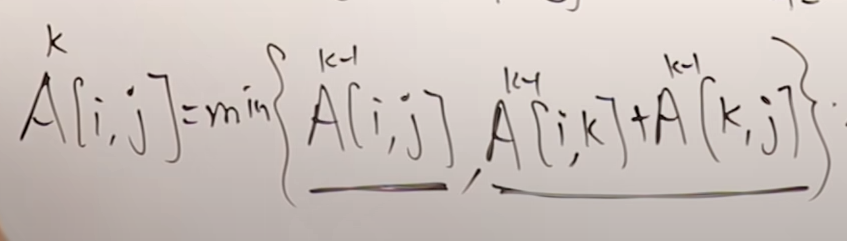 A^k[i,j] = min{ A^{k-1}[i,j], A^{k-1}[i,k] + A^{k-1}[k,j] }.